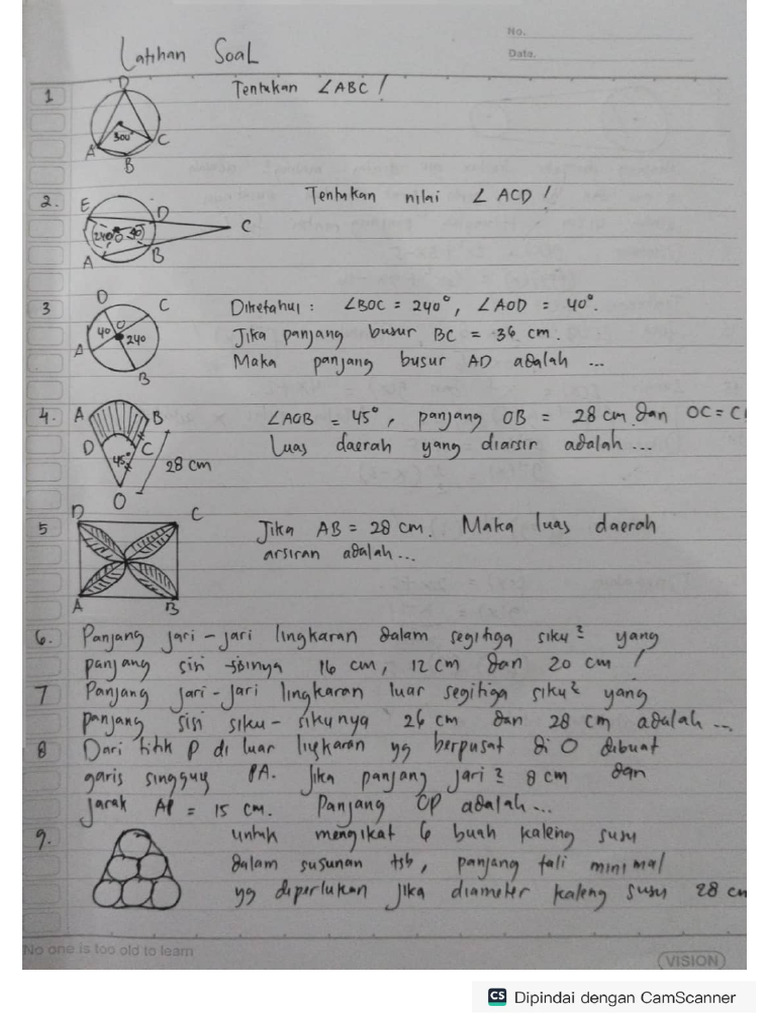 No.
Date.
Latihan Soal
1 Tentukan ∠ABC !
D
300°
A
C
B
2. Tentukan nilai ∠ ACD !
E
D
C
240° O
A
B
3 Diketahui : ∠BOC = 240°, ∠AOD = 40°.
Jika panjang busur BC = 36 cm.
Maka panjang busur AD adalah ...
D
C
O
40
240
A
B
4. ∠AOB = 45°, panjang OB = 28 cm dan OC = C
Luas daerah yang diarsir adalah ...
A
B
D
C
45°
28 cm
O
5 Jika AB = 28 cm. Maka luas daerah
arsiran adalah ...
D
C
A
B
6. Panjang jari-jari lingkaran dalam segitiga siku² yang
panjang sisi -sisinya 16 cm, 12 cm dan 20 cm !
7 Panjang jari-jari lingkaran luar segitiga siku² yang
panjang sisi siku-sikunya 26 cm dan 28 cm adalah ...
8 Dari titik P di luar lingkaran yg berpusat di O dibuat
garis singgung PA. Jika panjang jari² 8 cm dan
jarak AP = 15 cm. Panjang OP adalah ...
9. untuk mengikat 6 buah kaleng susu
dalam susunan tsb, panjang tali minimal
yg diperlukan jika diameter kaleng susu 28 cm
No one is too old to learn
VISION
CS Dipindai dengan CamScanner